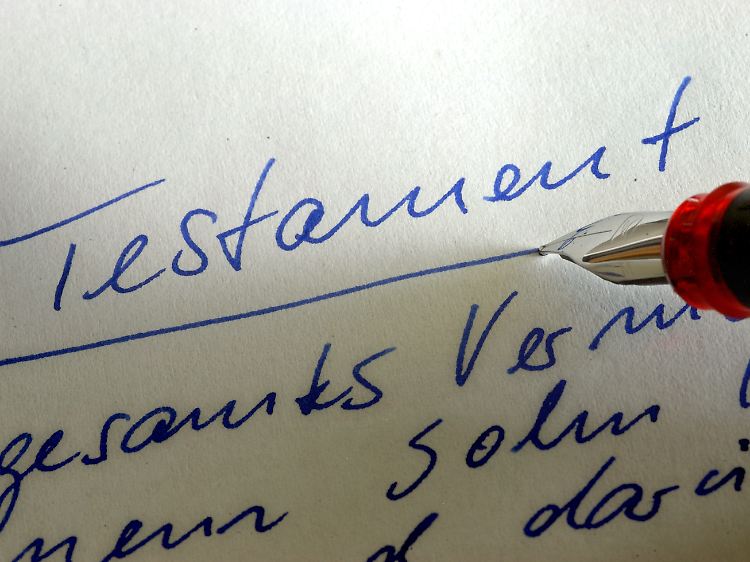 Testament
gesamtes Verm
meinem Sohn
d darü